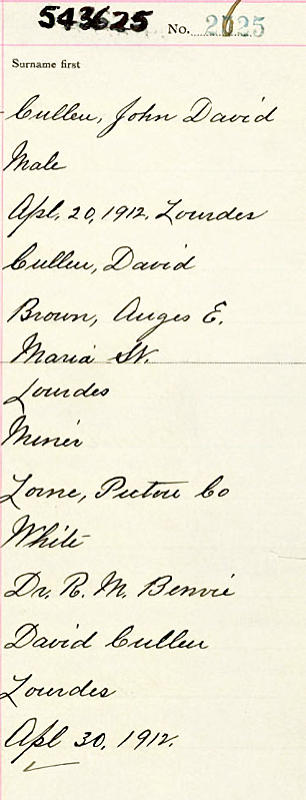 543625 No. 2625
Surname first
Cullen, John David
Male
Apl. 20, 1912, Lourdes
Cullen, David
Brown, Anges E.
Maria St.
Lourdes
Miner
Lorne, Pictou Co
White
Dr. R. M. Benvie
David Cullen
Lourdes
Apl 30, 1912.